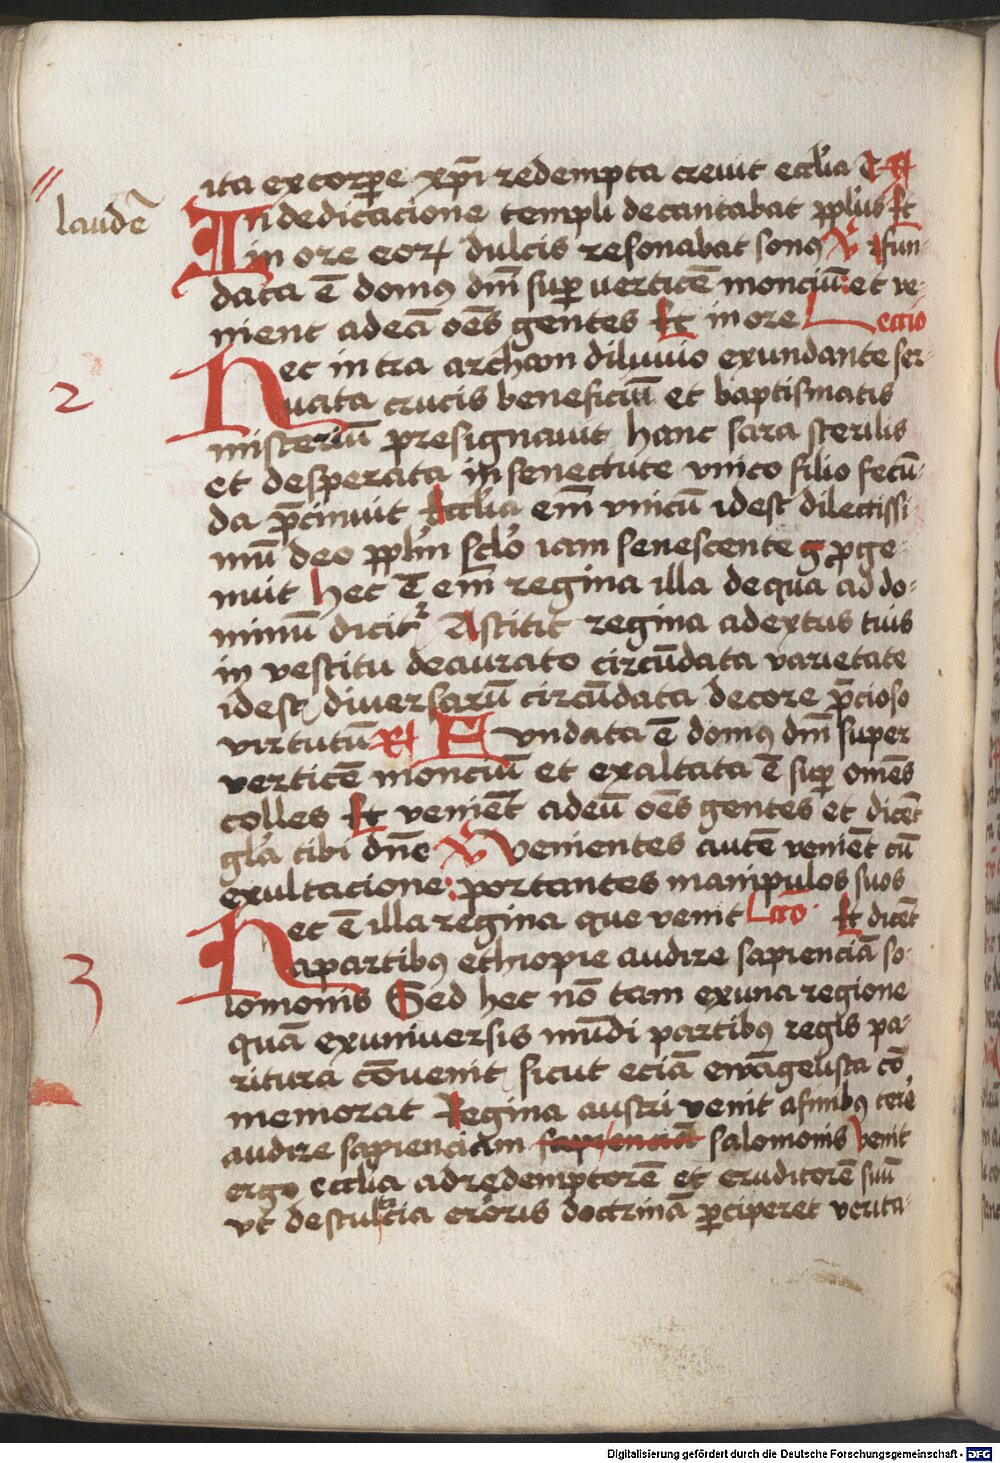 ita ex corꝑe xp̄i redempta crevit eccl̄ia ē R̄
laudē
In dedicacione templi decantabat ppl̄us Et
in ore eoꝝ dulcis resonabat sonꝯ V̄ Fun-
data ē domꝯ dm̄ suꝑ verticē monciū et ve-
nient ad eā oēs gentes Et in ore Leccio
2
Hec intra archam diluuio exundante ser-
uata crucis beneficiū et baptismatis
misteriū presignauit hanc sara sterilis
et desperata in senectute vnico filio fecū-
da p̄cinuit Eccl̄ia em̄ vnicū idest dilectissi
mū deo ppl̄m scl̄o iam senescente ꝓge-
nuit hec ē em̄ regina illa de qua ad do-
minū dicit᷑ Astitit regina a dextris tuis
in vestitu deaurato circūdata varietate
idest diuersarū circūdata decore p̄cioso
virtutū R̄ Fvndata ē domꝯ dm̄ super
verticē monciū et exaltata ē suꝑ omēs
colles Et veniēt ad eū oēs gentes et dicēt
gl̄a tibi dn̄e V̄ Venientes autē veniēt cū
exultacione portantes manipulos suos
3
Hec ē illa regina que venit Lcō Et dicēt
a partibꝯ ethiopie audire sapienciā so-
lomonis Sed hec nō tam ex una regione
quā ex universis mūdi partibꝯ regis pa-
ritura cōvenit sicut eciā ewāgelista cō
memorat Regina austri venit a finibꝯ terre
audire sapienciam sapienciā salomonis venit
ergo eccl̄ia ad redemptorē et eruditorē suū
vt de stulticia erroris doctrinā ꝑciperet verita-
Digitalisierung gefördert durch die Deutsche Forschungsgemeinschaft - DFG